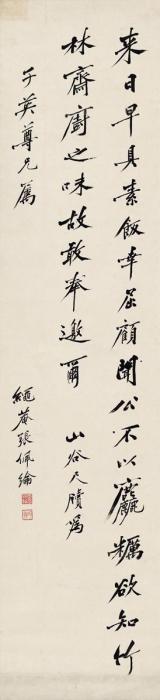 来日早具素飯幸屈顧聞公不以麤糲欲知竹
林齋廚之味故敢奉邀爾 山谷尺牘爲
子英尊兄篤
繩菴張佩綸